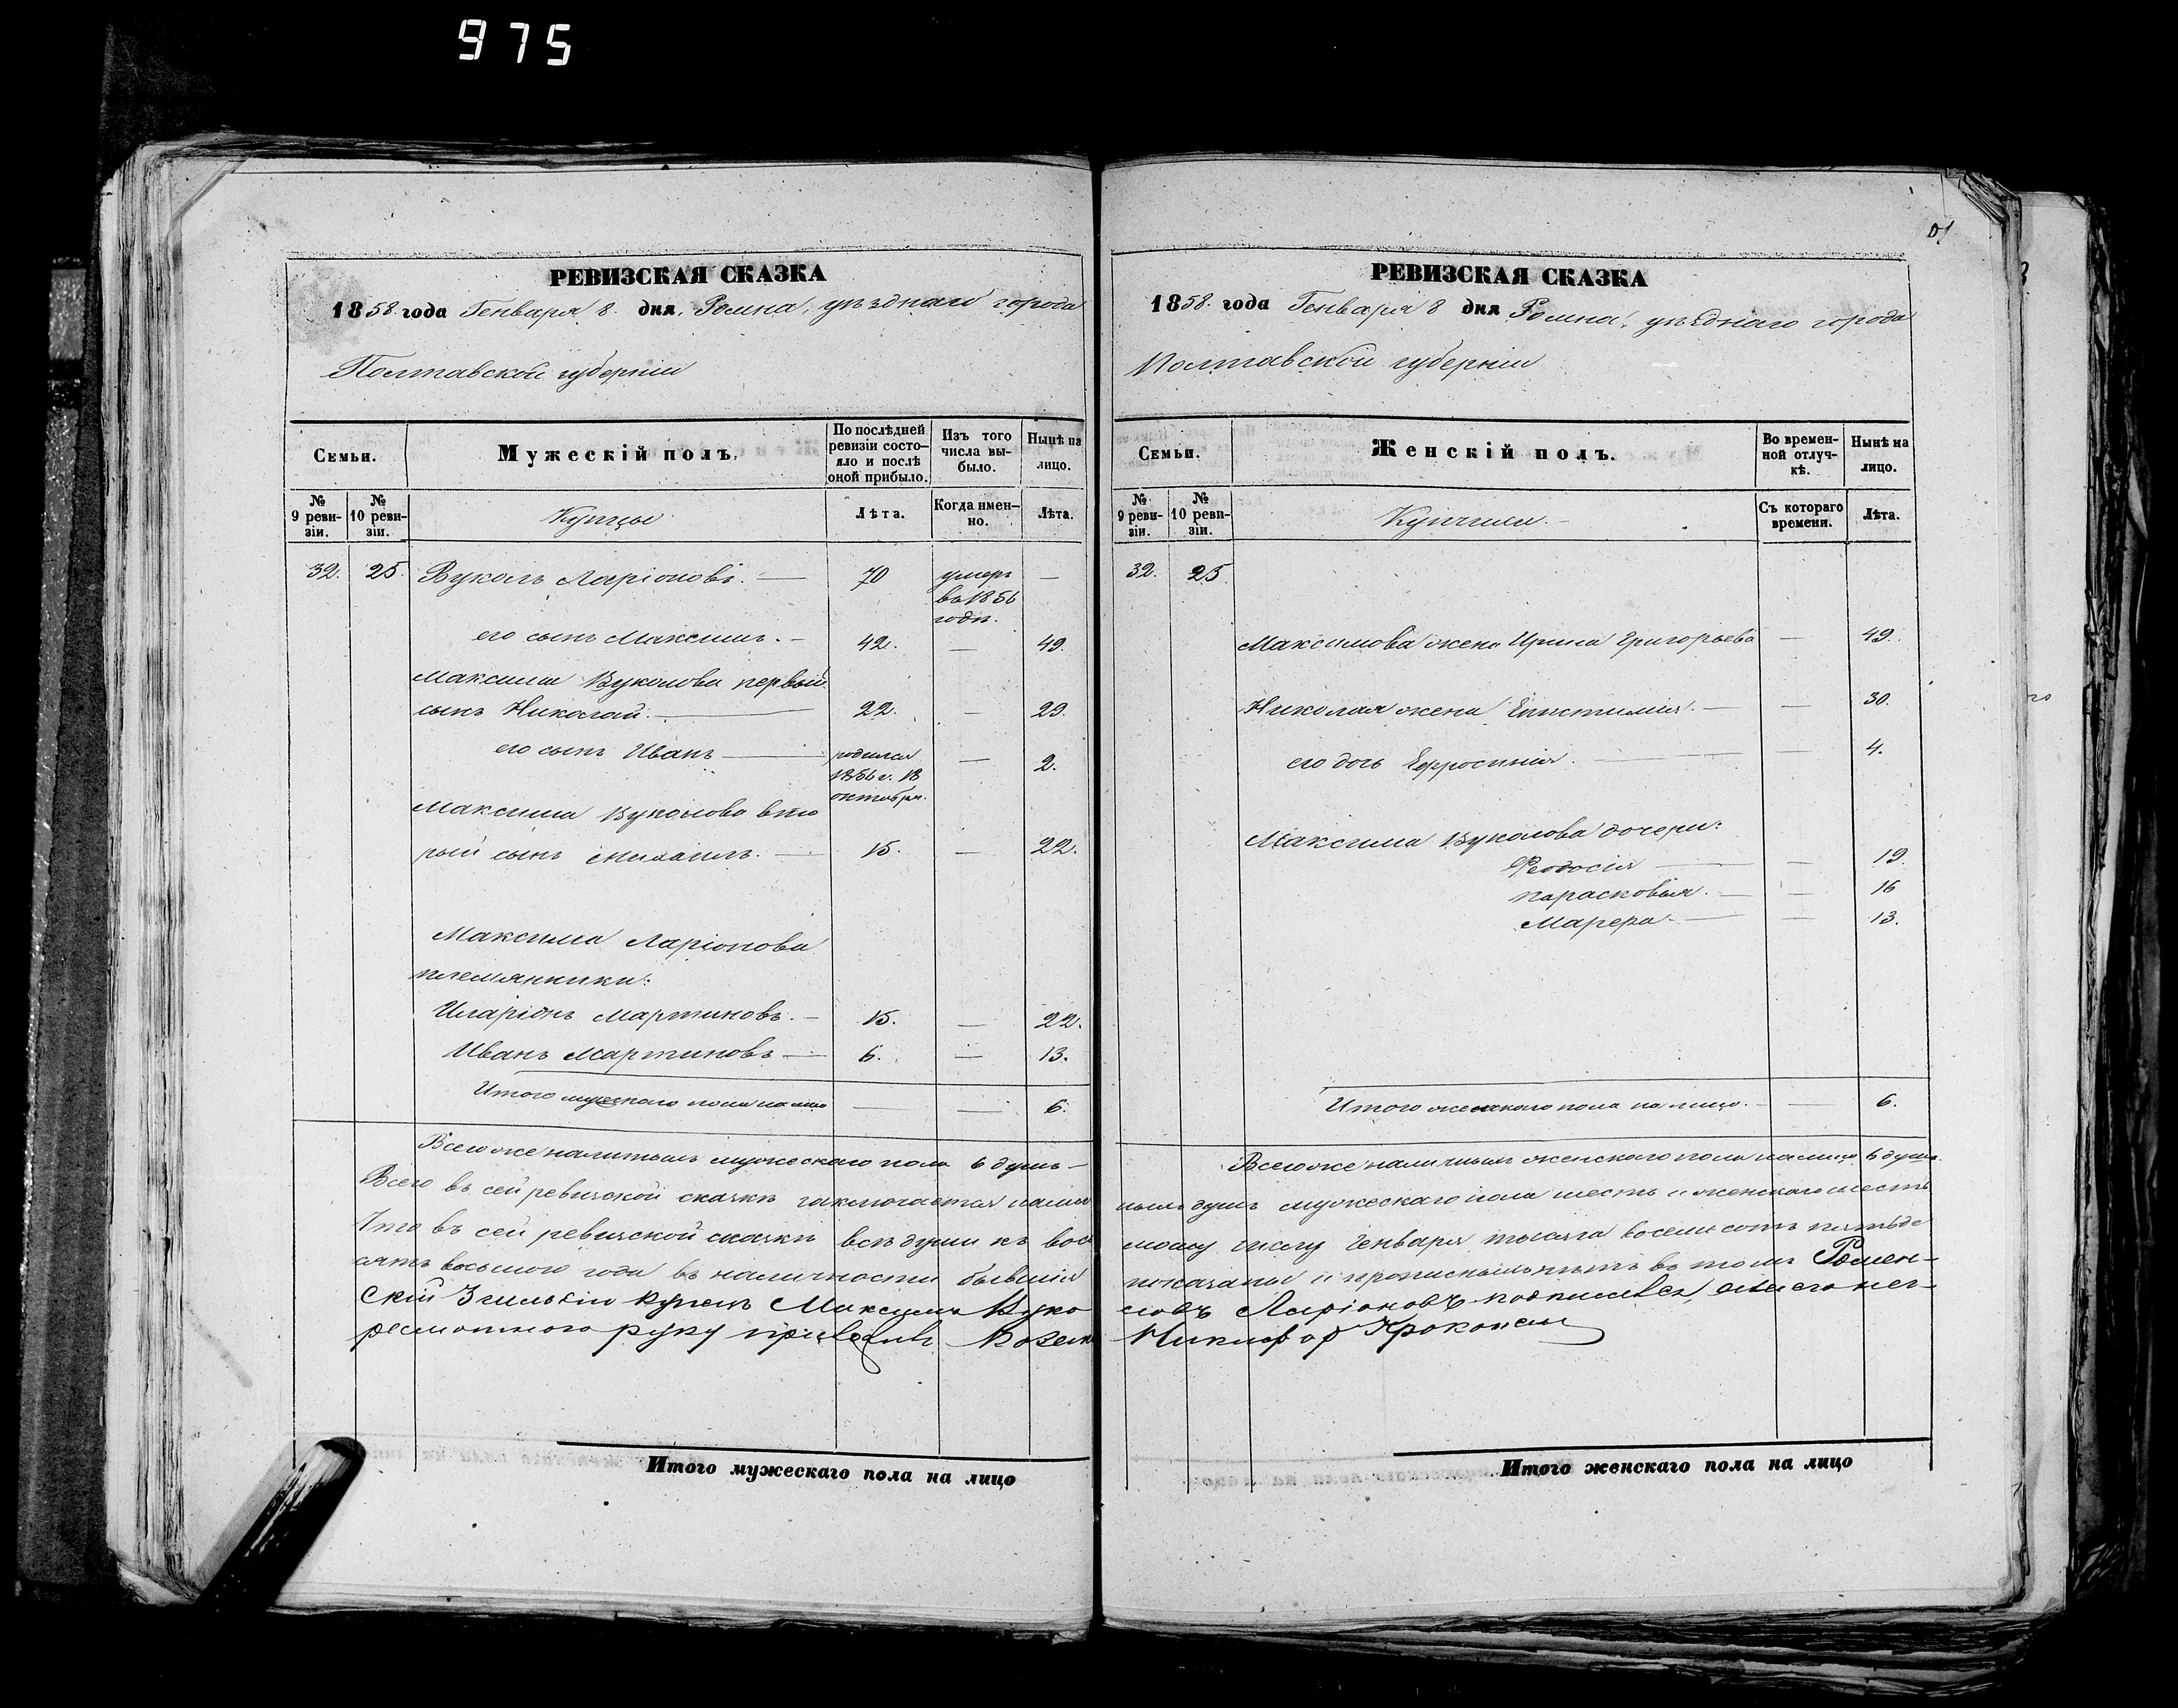 975
РЕВИЗСКАЯ СКАЗКА
1858. года Генваря 8. дня, Ромна, уѣзднаго города
Полтавской губерніи
Семьи.
Мужескій полъ.
По послѣдней ревизіи состо-
яло и послѣ оной прибыло.
Изъ того числа вы-
было.
Нынѣ на лицо.
№ 9 реви-
зіи.
№ 10 реви-
зіи.
Купцы
Лѣта.
Когда имен-
но.
Лѣта.
32. 25. Вуколъ Ларіоновъ. — 70 умеръ —
въ 1856
годѣ.
его сынъ Максимъ. — 42. — 49.
Максима Вуколова первый
сынъ Николай. — 22. — 29.
его сынъ Иванъ — родился — 2.
1856 г. 18
октября.
Максима Вуколова вто
рый сынъ Михаилъ. — 15. — 22.
Максима Ларіонова
племянники:
Иларіонъ Мартиновъ. — 15. — 22.
Иванъ Мартиновъ — 6. — 13.
Итого мужескаго пола на лицо — — 6.
Всего же наличныхъ мужескаго пола 6 душъ —
Всего въ сей ревизской сказкѣ заключается налич
Что въ сей ревизской сказкѣ всѣ души къ вось
сятъ восьмого года въ наличности бывшія
скій купецъ Максимъ Вуко
руку Козакъ
Итого мужескаго пола на лицо
РЕВИЗСКАЯ СКАЗКА
1858. года Генваря 8 дня Ромна, уѣзднаго города
Полтавской губерніи
Семьи.
Женскій полъ.
Во времен-
ной отлуч-
кѣ.
Нынѣ на лицо.
№ 9 реви-
зіи.
№ 10 реви-
зіи.
Купчихи. —
Съ котораго времени.
Лѣта.
32. 25.
Максимова жена Ирина Григорьева — 49.
Николая жена Епистимія. — — 30.
его дочь Ефросинія. — — 4.
Максима Вуколова дочери:
Феодосія — — 19.
Парасковія. — — 16
Марфа — — 13.
Итого женскаго пола на лицо. — — 6.
Всего же наличныхъ женскаго пола на лицо 6 душъ.
ныхъ душъ мужескаго пола шесть и женскаго шесть
мому числу Генваря тысяча восемь сотъ пятьде
показаны и прописныхъ нѣтъ въ томъ Ромен-
ловъ Ларіоновъ подписался, его нег-
Никифор Прокопенко
Итого женскаго пола на лицо